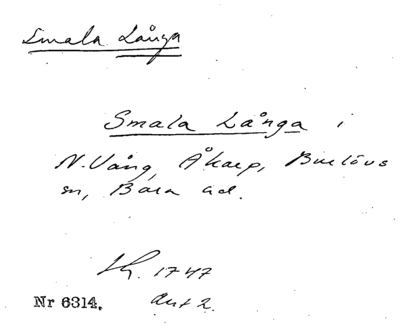 Smala Långa
Smala Långa i
N. Vång, Åkarp, Burlövs
sn, Bara hd.
Lh. 1747
Akt 2.
Nr 6314.